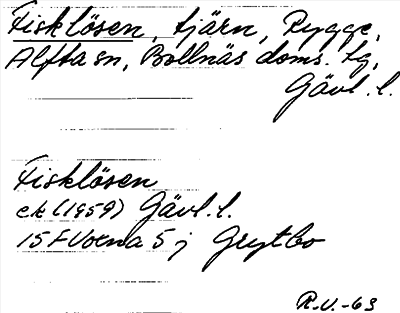 Fisklösen, tjärn, Rygge,
Alfta sn, Bollnäs doms. tg,
Gävl. l.
Fisklösen
ek (1959) Gävl. l.
15F Voxna 5 j Grytbo
R.V.-63